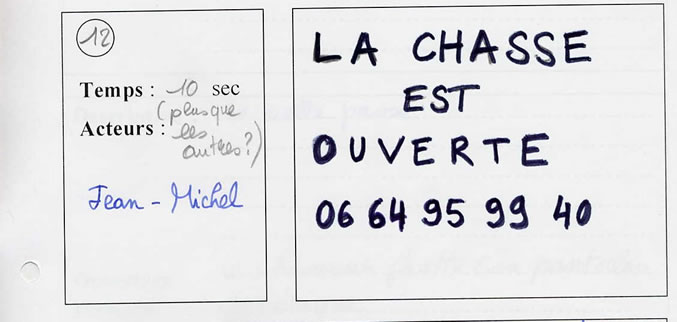 12
Temps : 10 sec
(plus que
Acteurs : les
autres?)
Jean - Michel
LA CHASSE
EST
OUVERTE
06 64 95 99 40